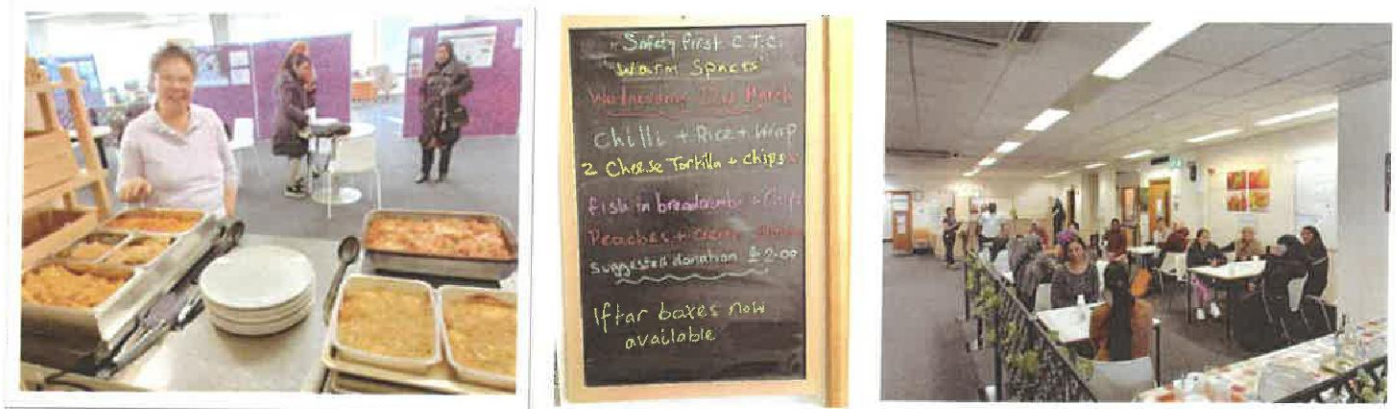 Safety first C.T.C.
"Warm Spaces"
Wednesday March
Chilli + Rice + Wrap
2 Cheese Tortilla + chips
fish in breadcrumbs + Chips
Peaches +
suggested donation £2.00
Iftar boxes now
available